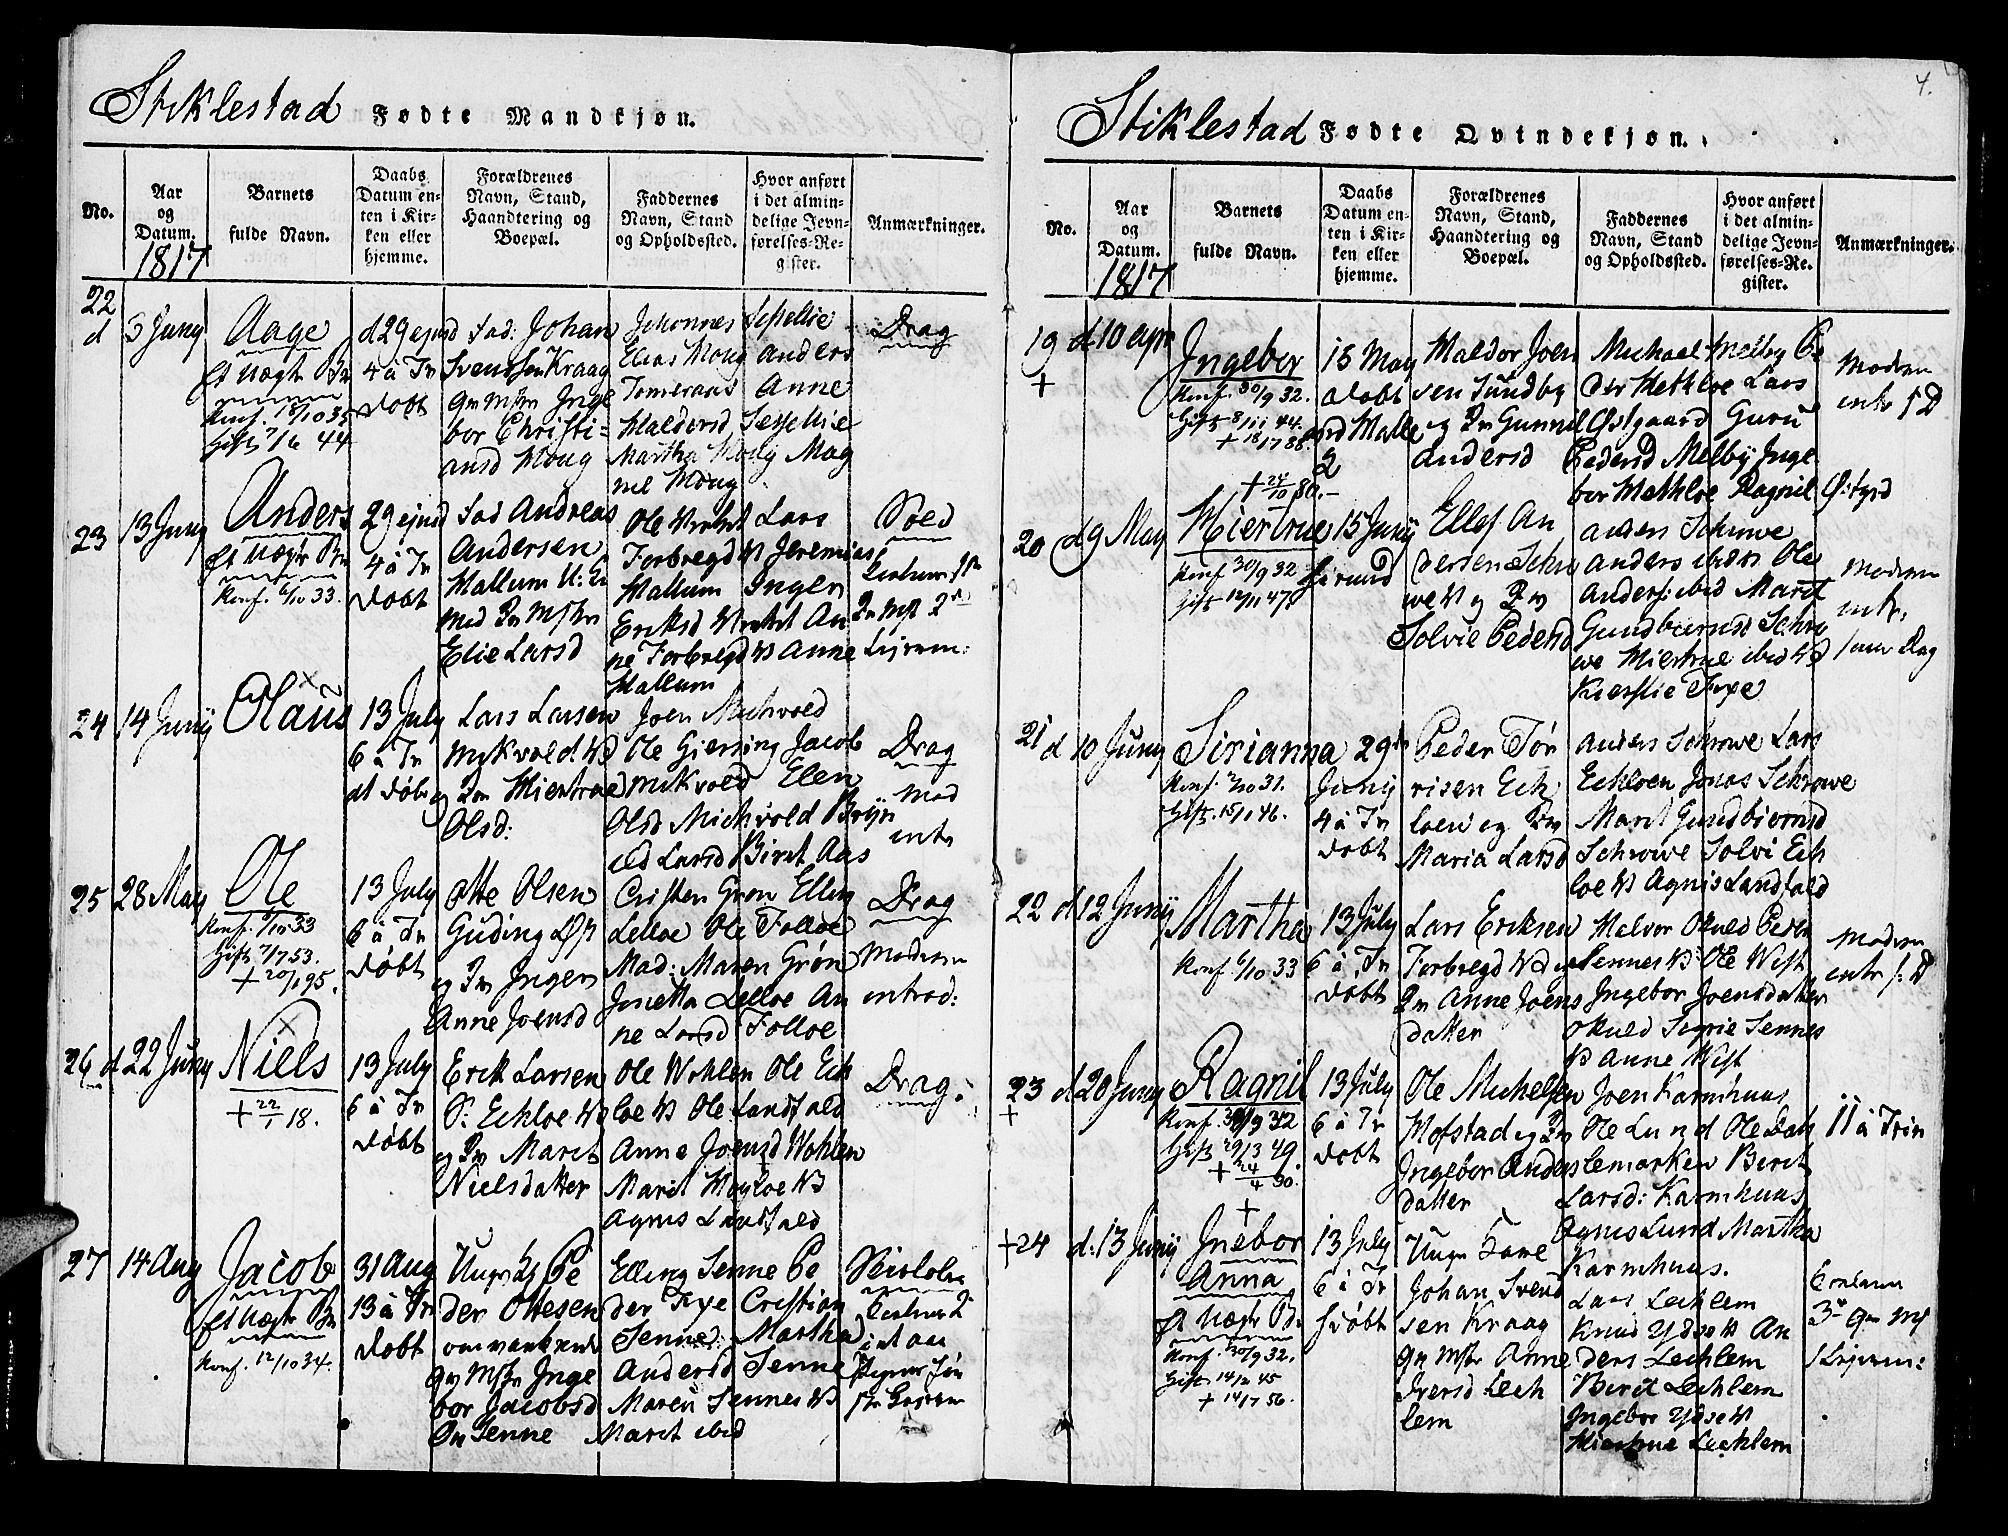 4.
Stiklestad Fødte Mandkjøn.
No.
Aar
og
Datum.
1817
Barnets
fulde Navn.
Daabs
Datum en-
ten i Kir-
ken eller
hjemme.
Forældrenes
Navn, Stand,
Haandtering og
Boepæl.
Faddernes
Navn, Stand
og Opholdssted.
Hvor anført
i det almin-
delige Jevn-
førelses-Re-
gister.
Anmærkninger.
22
d
3 Juny
Aage
Konf. 18/10 35
Gift 7/6 44
d 29 ejusd
4 à Tr
Døbt
Fad: Johan
Svendsen Kraag
Inge
bor Christi=
ansd Moug
Johannes
Elias Moug Anders
Tomeraas Anne
Haldorsd
Martha Moug Mag
nil Moug
Drag
23
13 Juny
Anders
Konf. 6/10 33.
29 ejusd
4 à Tr
Døbt
Fad Andreas
Andersen
Hallum
Elie Larsd
Lars
Forbregd Jeremias
Hallum Inger
Eriksd An
ne Forbregd Anne
Hallum
24
14 Juny
Olaus
13 July
6 à Tr
dt Døbt
Lars Larsen
Mykvold
og Hiertrue
Olsd:
Joen Michvold
Ole Giersing Jacob
Mykvold Elen
Olsd Michvold Bryn
ild Larsd Biret Aas
Drag
Mod
intr
25
28 May
Ole
Konf. 6/10 33
Gift 7/7 53.
+ 20/1 95.
13 July
6 à Tr
Døbt
Otte Olsen
Guding
og Inger
Anne Joensd
Cristen Grøn Elling
Lelloe Ole Folloe
Mad: Maren Grøn
Jonetta Lelloe An
ne Larsd Folloe
Drag
Moderen
introd:
26
d 22 Juny
Niels
+ 22/1 18.
13 July
6 à Tr
Døbt
Erik Larsen
Echloe
og Maret
Nielsdatter
Ole Wohlen Ole Ech
loe Ole Landfald
Anne Joensd Wohlen
Marit
Agnis Landfald
Drag
27
14 Aug
Jacob
Konf. 12/10 34.
31 Aug
13 à Tr
Døbt
Pe
der Ottesen
Inge
bor Jacobsd
Senne
Elling Senne Pe
der Fye Cristian
Senne: Martha
Andersd Senne
Maren Sennes
Marit ibid
Stiklestad Fødte Qvindekjøn.
No.
Aar
og
Datum.
1817
Barnets
fulde Navn.
Daabs
Datum en-
ten i Kir-
ken eller
hjemme.
Forældrenes
Navn, Stand,
Haandtering og
Boepæl.
Faddernes
Navn, Stand
og Opholdssted.
Hvor anført
i det almin-
delige Jevn-
førelses-Re-
gister.
Anmærkninger.
19
+
d 10 apr
Ingebor
Konf. 30/9 32.
Gift 8/11 44.
+ 18/7 88.
15 May
Døbt
Haldor Joen
sen Sundby
og Gunnil
Andersd
Michael Melby Pe
der Methloe Lars
Østgaard Guru
Pedersd Melby Inge
bor Methloe Ragnil
Moderen
intr
20
d 9 May
+ 24/10 80.
Hiertrue
Konf. 30/9 32.
Gift 12/11 47
15 Juny
Ellef An
dersen Schro
we og
Solvie Pedersd
Anders Schrowe
Anders ibid Ole
Anders: ibid Maret
Gundbiørnsd Schro
we Hiertrue ibid
Kierstie Fye
Moderen
intr.
21
d 10 Juny
Sirianna
Konf. 2/10 31.
Gift. 15/1 46.
29de
Juny
4 à Tr
Døbt
Peder Tør
risen Ech
loen og
Maria Larsd
Anders Schrowe Lars
Echloen Jonas Schrowe
Maret Gundbiørnsd
Schrowe Solvi Ech
loe Agnis Landfald
22
d 12 Juny
Martha
Konf. 6/10 33
13 July
6 à Tr
Døbt
Lars Eriksen
Forbregd og
Anne Joens
datter
Halvor Okuld Peder
Sennes Ole Wist
Ingebor Joensdatter
Okuld Sigrie Sennes
Anne Wist
Moderen
intr
23
+
d 20 Juny
Ragnil
Konf. 30/9 32
Gift 29/3 49.
+ 24/4 90.
13 July
6 à Tr
Døbt
Ole Michelsen
Hofstad og
Ingebor Anders
datter
Joen Karmhuus
Ole Lund Ole Dah
lemarken Birit
Larsd: Karmhuus
Agnis Lund Martha
Karmhuus.
11 à Trin
+24
d: 13 Juny
+
Inebor
Anna
Konf. 30/9 32.
Gift 14/11 45
+ 14/7 56.
13 July
6 à Tr
Døbt
Johan Svend
sen Kraag
Anne
Iversd Lech
lem
Lars Lechlem
Knud Ydse An
ders Lechlem
Birit Lechlem
Ingebor Ydse
Hiertrue Lechlem